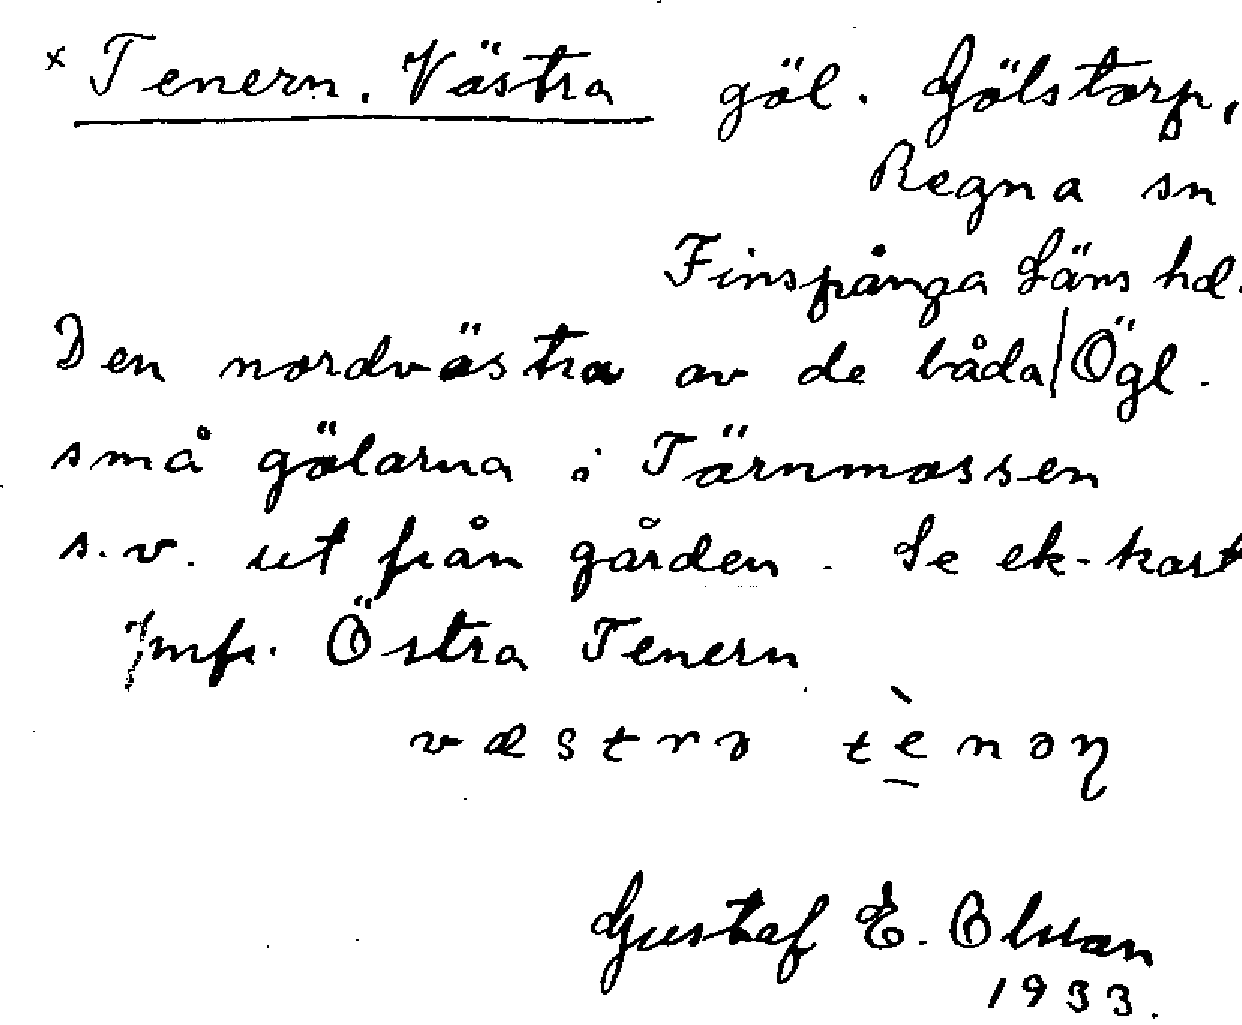 × Tenern, Västra göl. Gölstorp,
Regna sn
Finspånga Läns hd.
Den nordvästra av de båda | Ögl.
små gölarna i Tärnmossen
s.v. ut från gården. Se ek-kart
Jmfr. Östra Tenern
væstrə tènəɳ
Gustaf E. Olsson
1933.